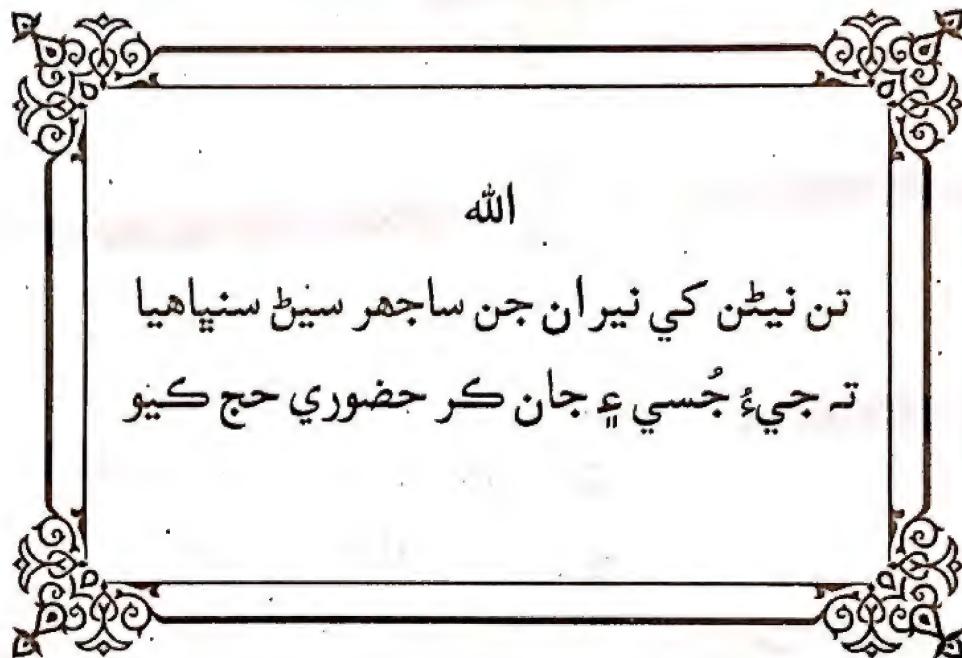 الله
تن نيڻن کي نيران جن ساجھر سيڻ سنڀاھيا
تہ جيءُ جُسي ۾ جان ڪر حضوري حج ڪيو